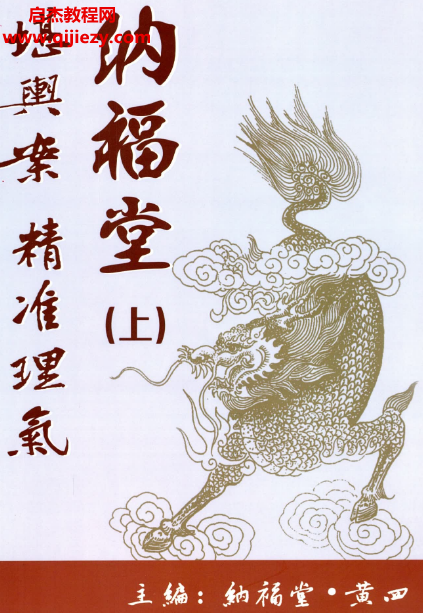 启杰教程网
www.qijiezy.com
納福堂
(上)
堪輿案 精准理氣
主編：納福堂·黄四